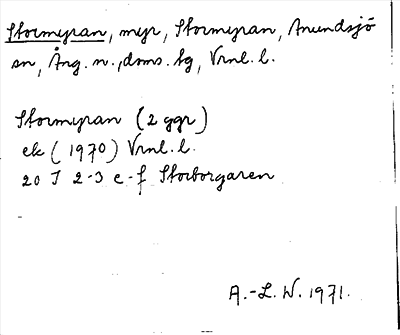 Stormyran, myr, Stormyran, Anundsjö
sn, Ång. n., doms. tg, Vrnl. l.
Stormyran (2 ggr)
ek (1970) Vrnl. l.
20 I 2-3 e-f Storborgaren
A.-L. W. 1971.